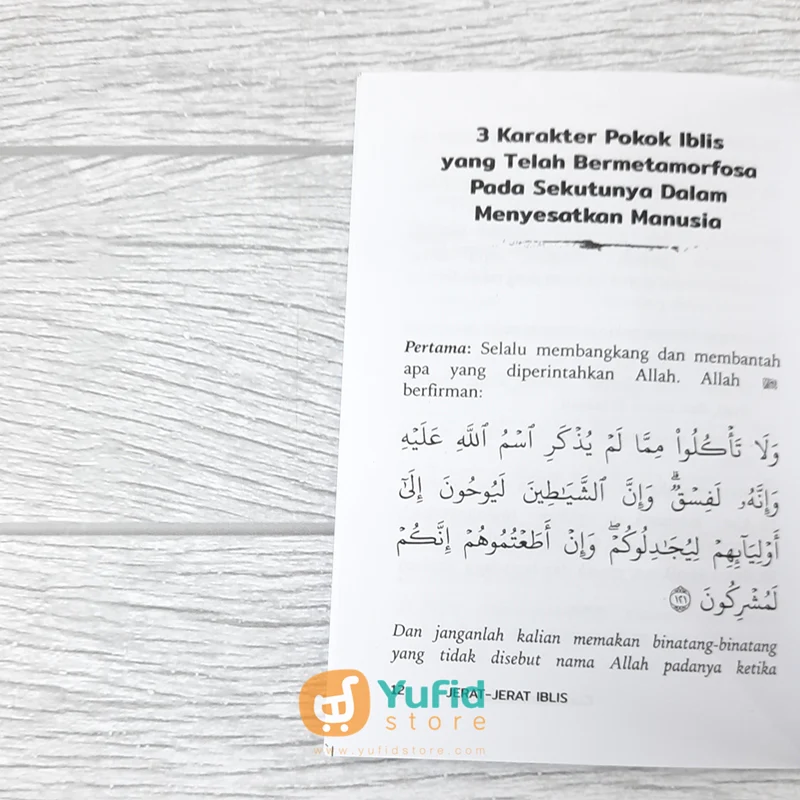 3 Karakter Pokok Iblis
yang Telah Bermetamorfosa
Pada Sekutunya Dalam
Menyesatkan Manusia
Pertama: Selalu membangkang dan membantah
apa yang diperintahkan Allah. Allah
berfirman:
وَلَا تَأۡكُلُواْ مِمَّا لَمۡ يُذۡكَرِ ٱسۡمُ ٱللَّهِ عَلَيۡهِ
وَإِنَّهُۥ لَفِسۡقٞۗ وَإِنَّ ٱلشَّيَٰطِينَ لَيُوحُونَ إِلَىٰٓ
أَوۡلِيَآئِهِمۡ لِيُجَٰدِلُوكُمۡۖ وَإِنۡ أَطَعۡتُمُوهُمۡ إِنَّكُمۡ
لَمُشۡرِكُونَ ١٢١
Dan janganlah kalian memakan binatang-binatang
yang tidak disebut nama Allah padanya ketika
12 JERAT-JERAT IBLIS
Yufid
store
www.yufidstore.com